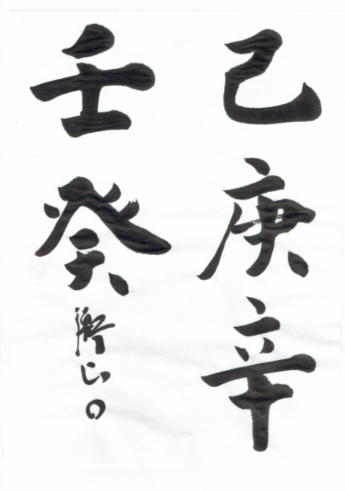 己庚辛
壬癸